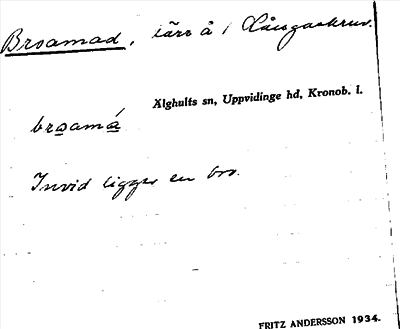 Broamad, tärr å i Långaskruv.
Älghults sn, Uppvidinge hd, Kronob. l.
broamá
Invid ligger en bro.
FRITZ ANDERSSON 1934.